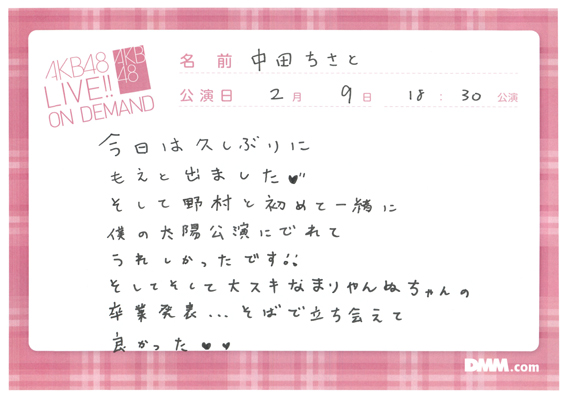 AKB48
LIVE!!
ON DEMAND
AKB
48
名前 中田ちさと
公演日 2月 9日 18:30公演
今日は久しぶりに
もえと出ました♥
そして野村と初めて一緒に
僕の太陽公演にでれて
うれしかったです!!
そしてそして大スキなまりやんぬちゃんの
卒業発表...そばで立ち会えて
良かった♥♥
DMM.com